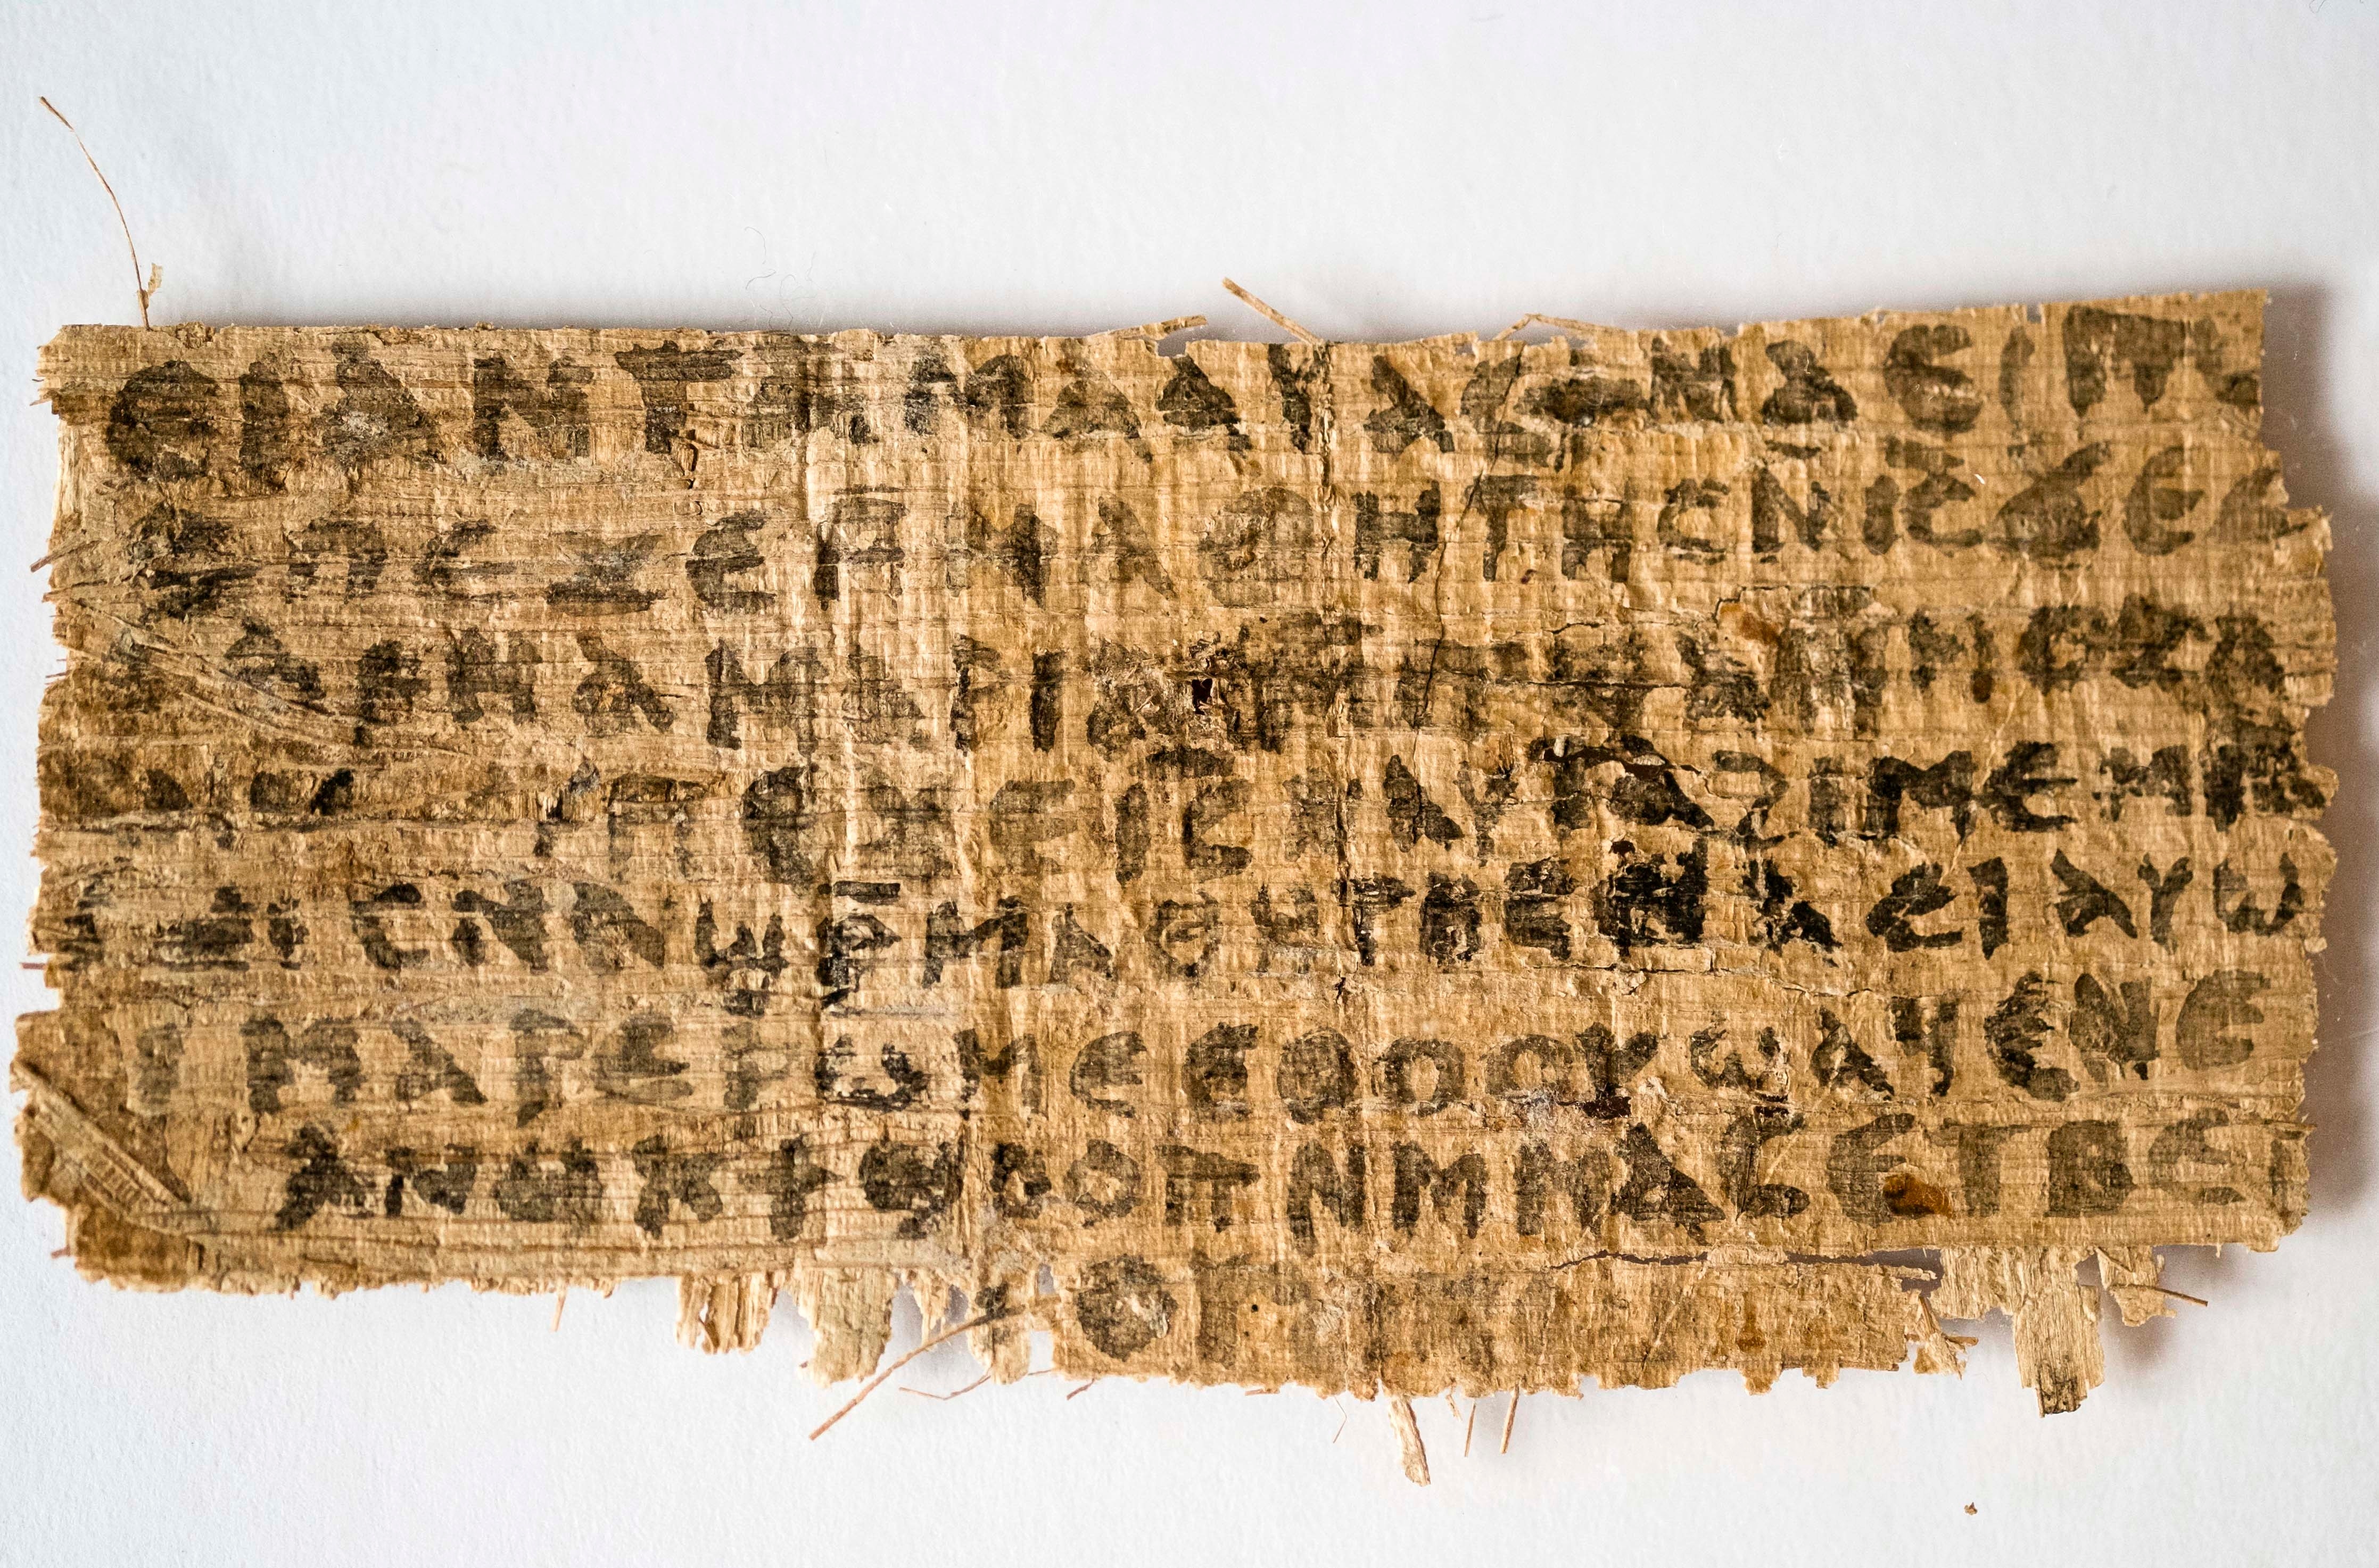 ⲉⲓ ⲁⲛ ⲧⲁⲙⲁⲁⲩ ⲁⲥϯ ⲛⲁⲉⲓ ⲡ
ⲡⲉϫⲉ ⲙⲙⲁⲑⲏⲧⲏⲥ ⲛⲓ̅ⲥ̅ ϫⲉ ⲥ
ⲁⲣⲛⲁ ⲙⲁⲣⲓⲁⲙ ⲙⲡϣⲁ ⲙⲙⲟⲥ ⲁ
ⲡⲉϫⲉ ⲓ̅ⲥ̅ ⲛⲁⲩ ⲧⲁϩⲓⲙⲉ ⲙⲛ
ⲥⲛⲁϣⲣ̅ⲙⲁⲑⲏⲧⲏⲥ ⲛⲁⲉⲓ ⲁⲩⲱ
ⲓ ⲙⲁⲣⲉⲣⲱⲙⲉ ⲉⲑⲟⲟⲩ ϣⲁϥⲉ ⲛⲉ
ⲁⲛⲟⲕ ϯϣⲟⲟⲡ ⲛⲙⲙⲁⲥ ⲉⲧⲃⲉ ⲡ
ⲟⲩ